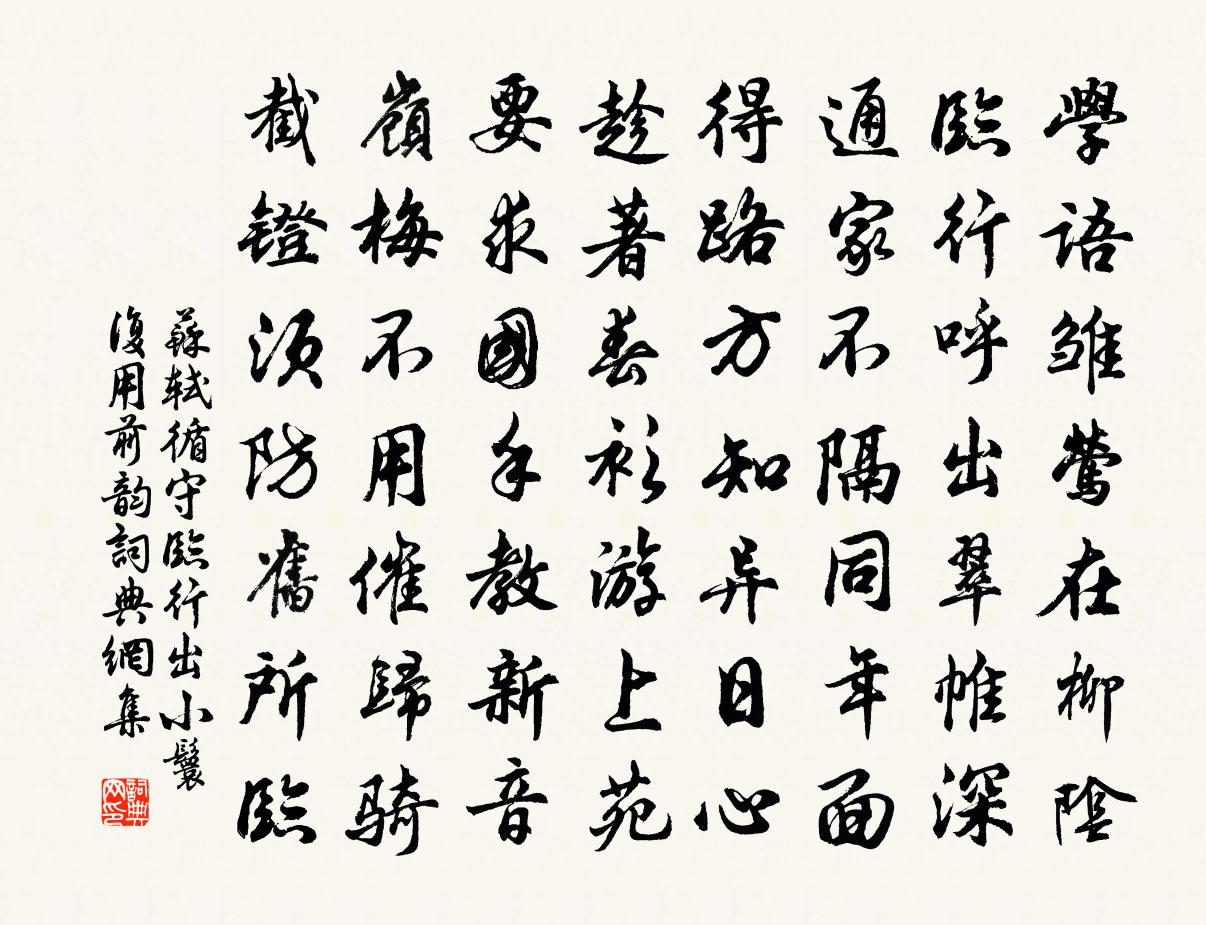 學語雏莺在柳陰
臨行呼出翠帷深
通家不隔同年面
得路方知异日心
趁著春衫游上苑
要求國手教新音
嶺梅不用催歸騎
截鐙須防舊所臨
蘇軾循守臨行出小鬟
復用前韵詞典網集
詞典网印